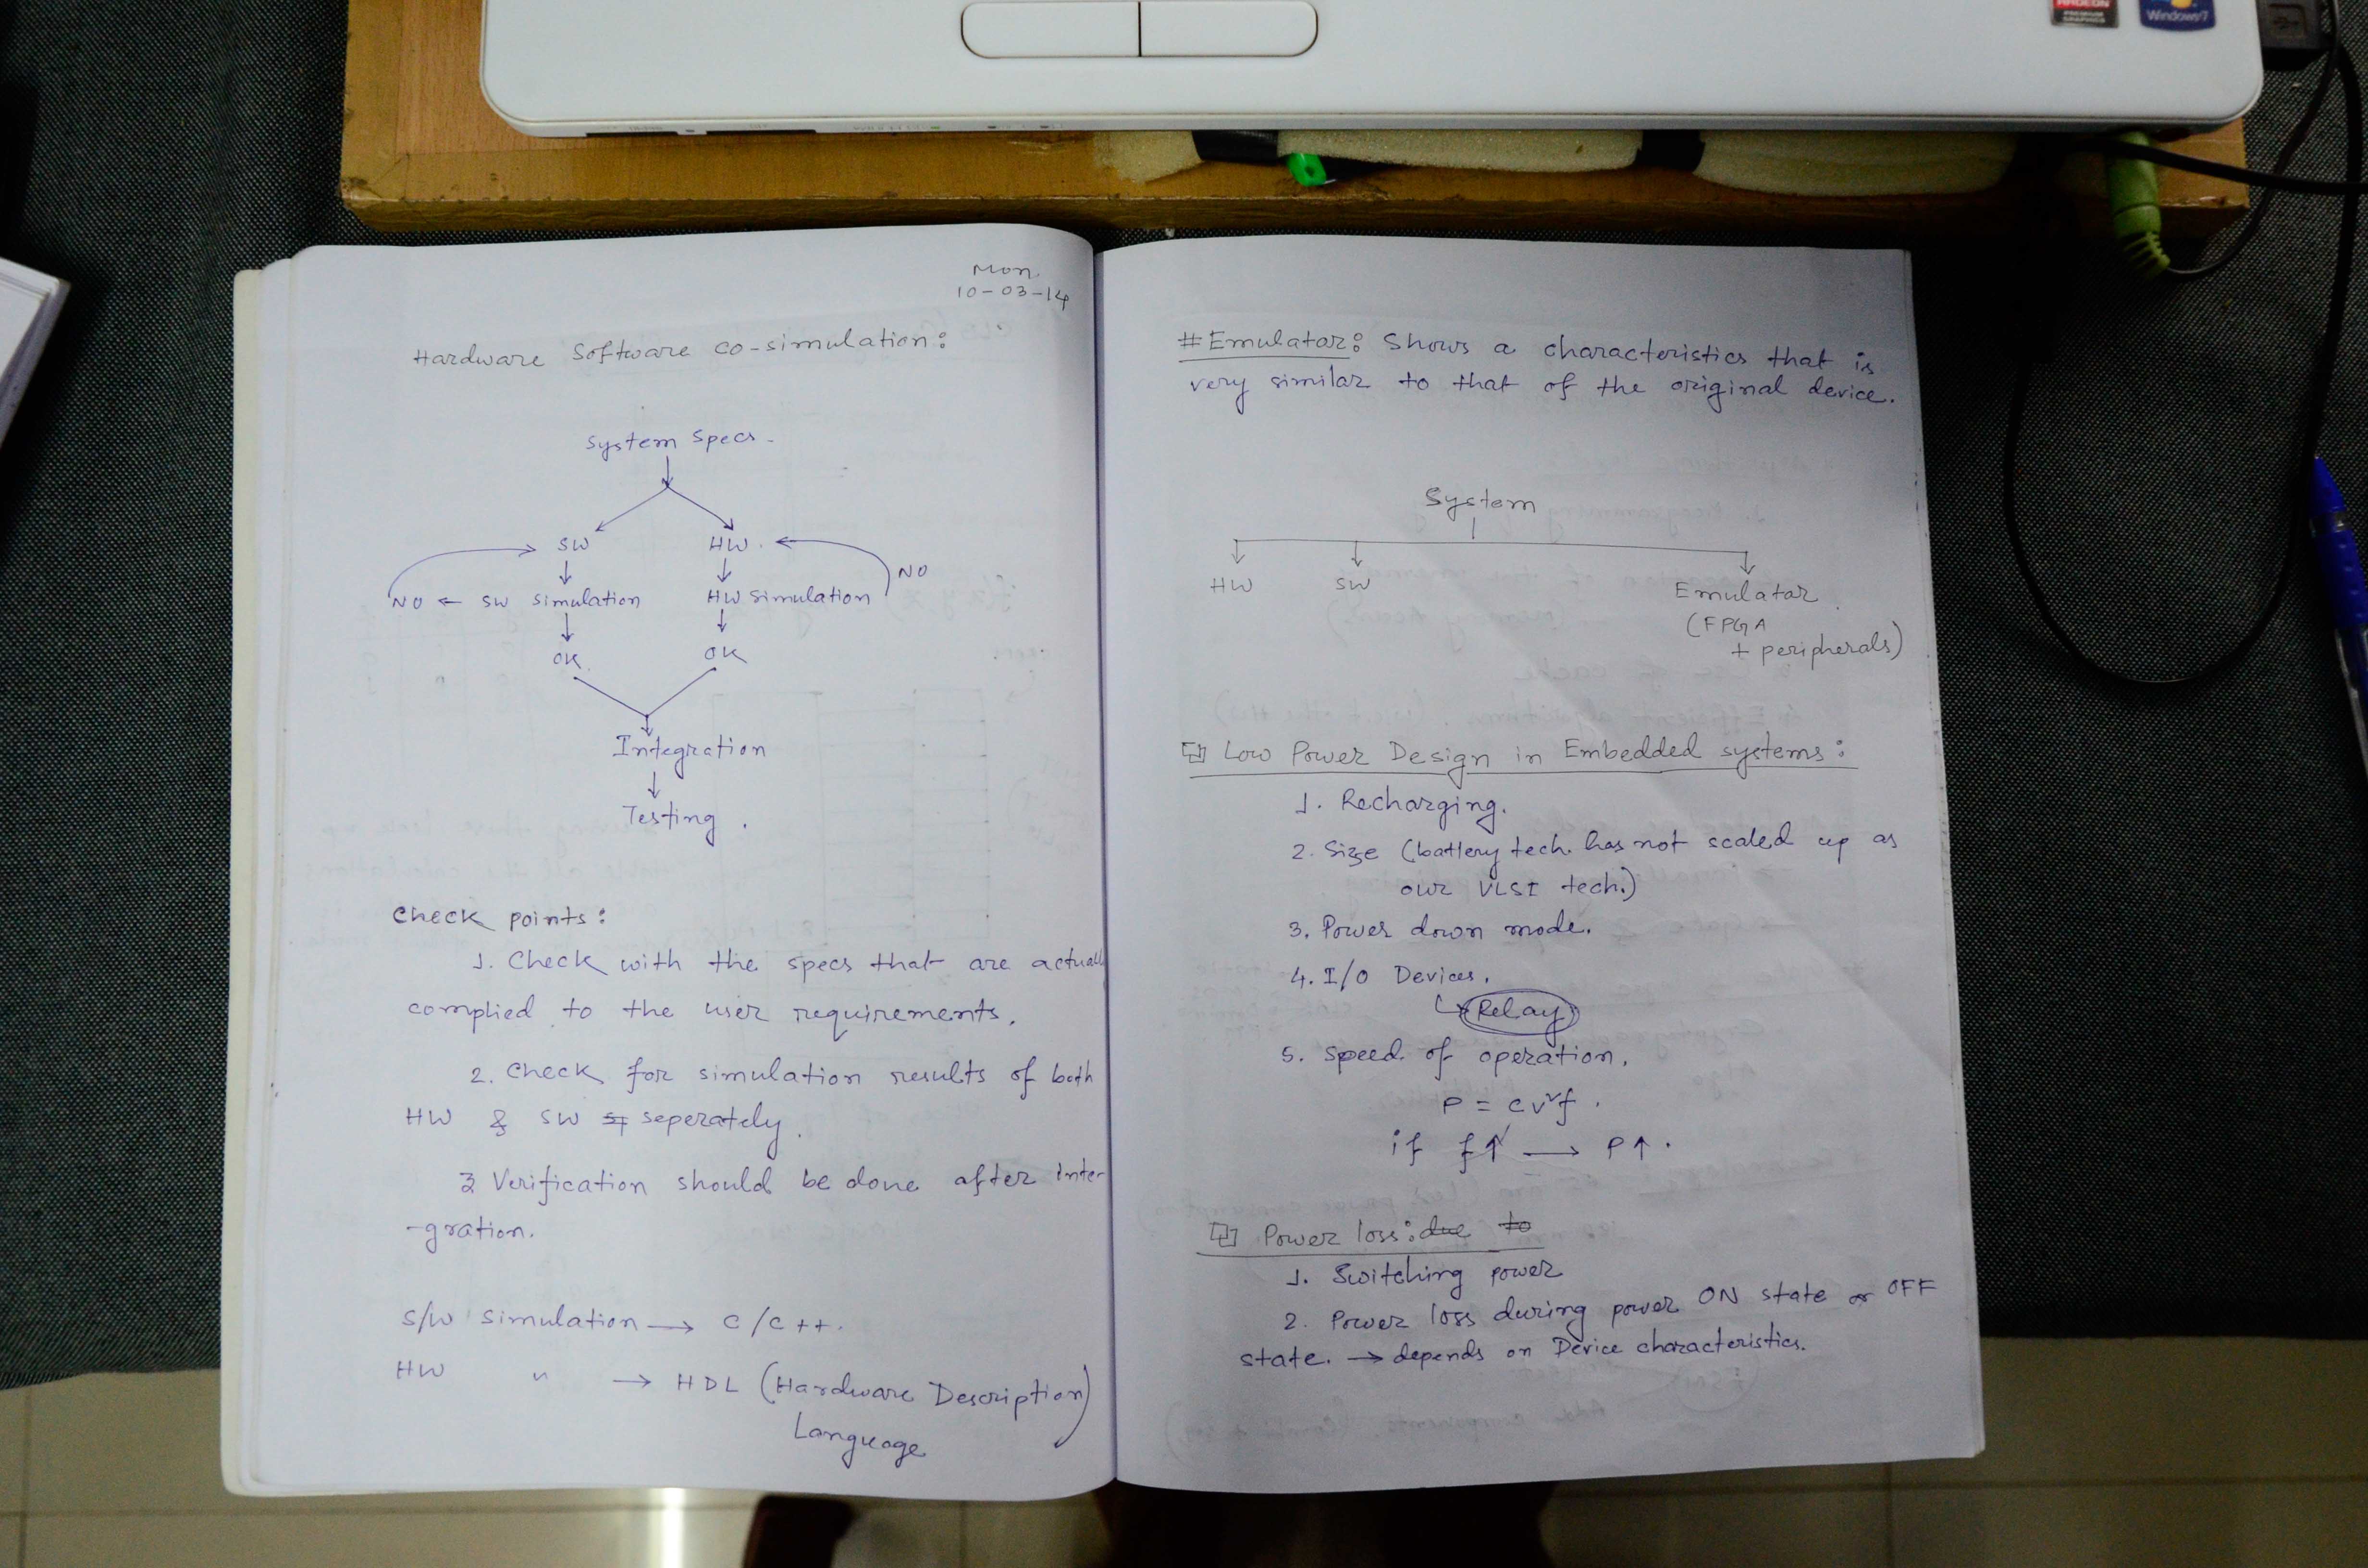 RADEON
PREMIUM
GRAPHICS
Windows 7
Mon.
10-03-14
Hardware Software co-simulation:
System Specs.
SW HW.
NO ← SW simulation HW Simulation NO
OK OK
Integration
Testing.
Check points:
1. Check with the specs that are actuall
complied to the user requirements.
2. Check for simulation results of both
HW & SW seperately.
3 Verification should be done after inter-
-gration.
S/W simulation → C/C++.
HW " → HDL (Hardware Description
Language)
# Emulator: Shows a characteristics that is
very similar to that of the original device.
System
HW SW Emulator.
(FPGA
+ peripherals)
Low Power Design in Embedded systems:
1. Recharging.
2. Size (battery tech. has not scaled up as
our VLSI tech.)
3. Power down mode.
4. I/O Devices.
↳ Relay
5. Speed of operation.
P = cv²f.
if f↑ → P↑.
Power loss: due to
1. Switching power
2. Power loss during power ON state or OFF
state. → depends on Device characteristics.